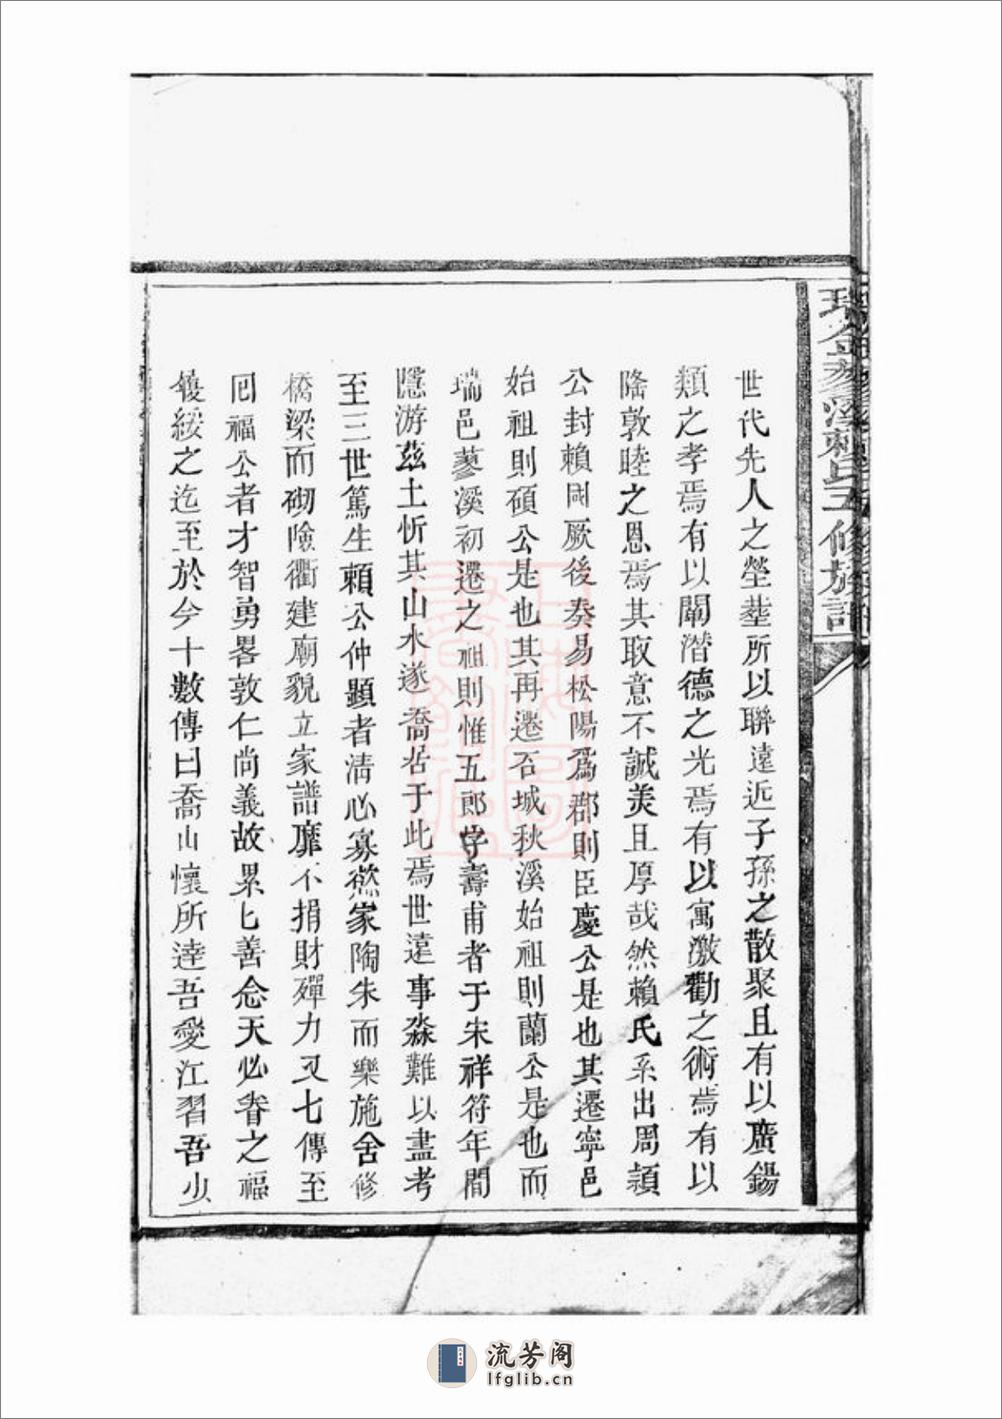 世代先人之塋塟所以聯遠近子孫之散聚且有以廣錫
類之孝焉有以闡潛德之光焉有以寓激勸之術焉有以
隆敦睦之恩焉其取意不誠美且厚哉然賴氏系出周頴
公封賴國厥後秦易松陽爲郡則臣慶公是也其遷寧邑
始祖則碩公是也其再遷石城秋溪始祖則蘭公是也而
瑞邑蓼溪初遷之祖則惟五郎字壽甫者于宋祥符年間
隱游茲土忻其山水遂喬居于此焉世遠事淼難以盡考
至三世篤生賴公仲顯者清心寡慾家陶朱而樂施舍修
橋梁而砌險衢建廟貌立家譜靡不捐財殫力又七傳至
囘福公者才智勇畧敦仁尚義故累匕善念天必眷之福
履綏之迄至於今十數傳曰喬山懷所逹吾愛江習吾少
瑞金蓼溪賴氏五修族譜
上海圖書館藏
流芳阁
lfglib.cn